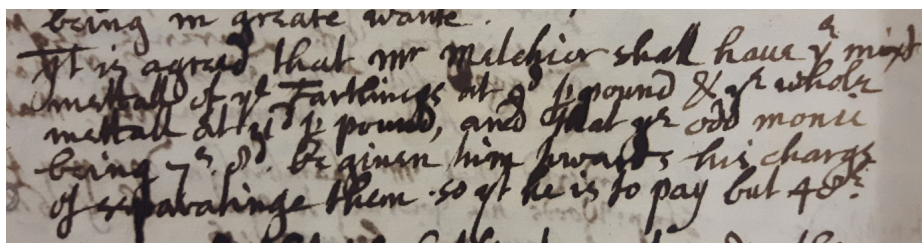 being in greate wante.
It is agreed that mr Melchior shall have ye mixt
mettall of ye Farthings at 9d p pound & ye whole
mettall at 11d p pound, and that ye odd monie
being 7s. 8d. be given him towards his charge
of separatinge them. so yt he is to pay but 48s.